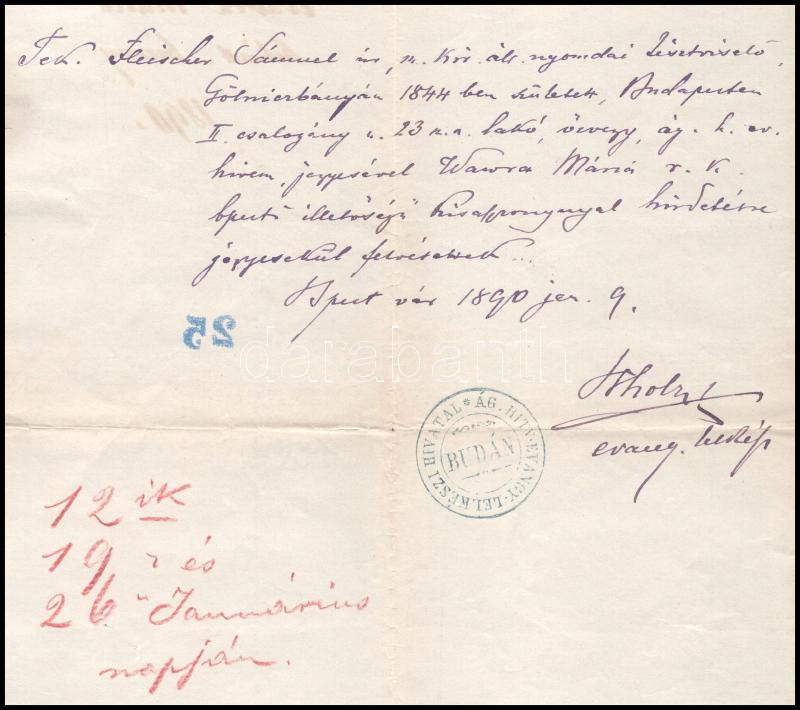 Tek. Fleischer Sámuel úr, m. kir. áll. nyomdai tisztviselő,
Gölniczbányán 1844 ben született, Budapesten
II. csalogány u. 23 n.a. lakó, özvegy, ág. h. ev.
hívem, jegyesével Wawra Mária r. k.
bpesti illetőségű kisasszonynyal hirdetésre
jegyesekül felvétettek...
Bpest vár 1890 jan. 9.
25
darabanth
Scholtz
evang. lelkész
ÁG. HITV. EVANGY. LELKÉSZI HIVATAL *
BUDÁN
12 ik
19 " és
26 " Januárius
napján.